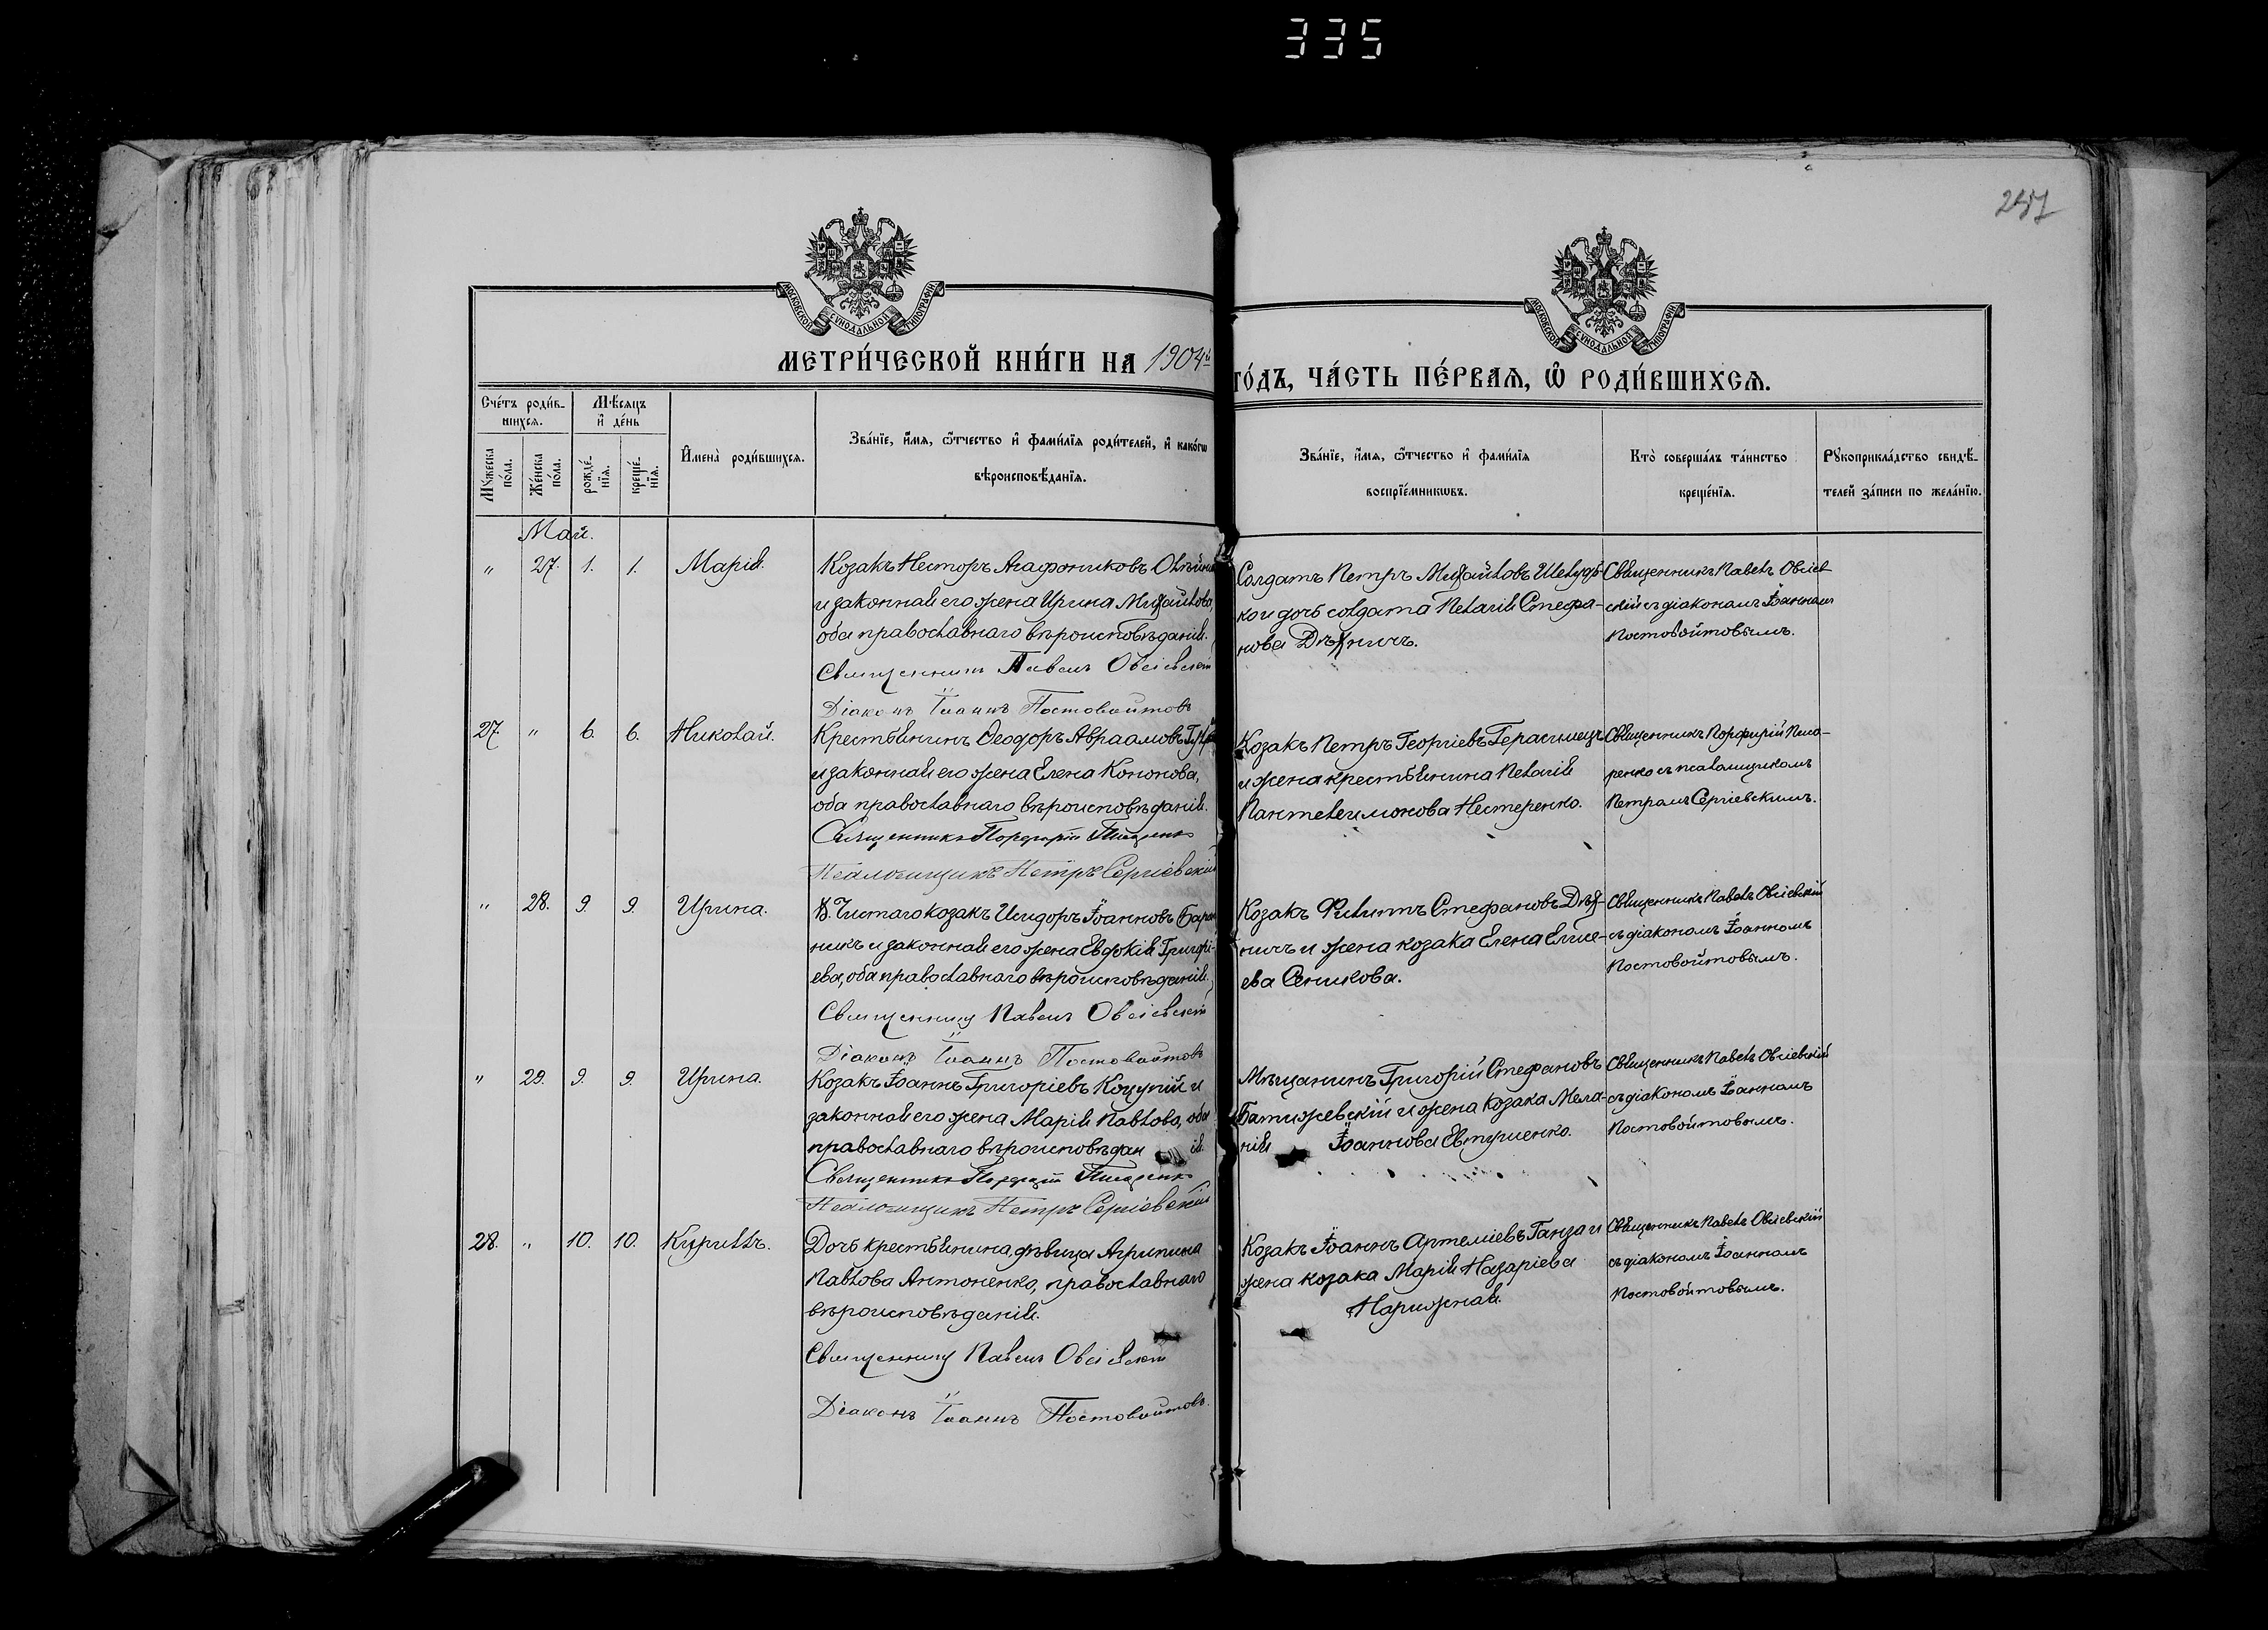 335
257
МОСКОВСКОЙ СѴНОДАЛЬНОЙ ТИПОГРАФІИ
МОСКОВСКОЙ СѴНОДАЛЬНОЙ ТИПОГРАФІИ
МЕТРИ́ЧЕСКОЙ КНИ́ГИ НА 1904й
ГО́ДЪ, ЧА́СТЬ ПЕ́РВАѦ, Ѡ҆ РОДИ́ВШИХСѦ.
Сче́тъ роди́в-
шихсѧ.
Мꙋ́жеска по́ла.
Же́нска по́ла.
Мѣ́сѧцъ
и҆ де́нь
рожде́-
нїѧ.
креще́-
нїѧ.
И҆мена̀ роди́вшихсѧ.
Зва́нїе, и҆́мѧ, ѻ҆́тчество и҆ фами́лїѧ роди́телей, и҆ како́гѡ
вѣроисповѣ́данїѧ.
Зва́нїе, и҆́мѧ, ѻ҆́тчество и҆ фами́лїѧ
воспрїе́мникѡвъ.
Кто̀ соверша́лъ та́инство
креще́нїѧ.
Рꙋкоприкла́дство свидѣ́-
телей за́писи по жела́нїю.
Май.
" 27. 1. 1. Марія.
Козакъ Несторъ Агафониковъ
и законная его жена Ирина Михайлова,
оба православнаго вѣроисповѣданія.
Священникъ Павелъ Овсіевскій
Діаконъ Іоаннъ Постовойтовъ
Солдатъ Петръ Михайловъ Шелудь-
ко и дочь солдата Пелагія Стефа-
нова Дѣхничъ.
Священникъ Павелъ Овсіев-
скій съ діакономъ Іоанномъ
Постовойтовымъ.
27. " 6. 6. Николай.
Крестьянинъ Ѳеодоръ Авраамовъ
и законная его жена Елена Кононова,
оба православнаго вѣроисповѣданія.
Священникъ Порфирій Писаренко
Псаломщикъ Петръ Сергіевскій
Козакъ Петръ Георгіевъ Герасимецъ
и жена крестьянина Пелагія
Пантелеимонова Нестеренко.
Священникъ Порфирій Писа-
ренко съ псаломщикомъ
Петромъ Сергіевскимъ.
" 28. 9. 9. Ирина.
Х. Чистаго козакъ Исидоръ Іоанновъ Баран
никъ и законная его жена Евдокія Григорі-
ева, оба православнаго вѣроисповѣданія.
Священникъ Павелъ Овсіевскій
Діаконъ Іоаннъ Постовойтовъ
Козакъ Филиппъ Стефановъ Дѣх-
ничъ и жена козака Елена Елисе-
ева Сеникова.
Священникъ Павелъ Овсіевскій
съ діакономъ Іоанномъ
Постовойтовымъ.
" 29. 9. 9. Ирина.
Козакъ Іоаннъ Григоріевъ Коцупій и
законная его жена Марія Павлова, оба
православнаго вѣроисповѣданія.
Священникъ Порфирій Писаренко
Псаломщикъ Петръ Сергіевскій
Мѣщанинъ Григорій Стефановъ
Батижевскій и жена козака Мела-
нія Іоаннова Евтушенко.
Священникъ Павелъ Овсіевскій
съ діакономъ Іоанномъ
Постовойтовымъ.
28. " 10. 10. Кириллъ.
Дочь крестьянина, дѣвица Агрипина
Павлова Антоненко, православнаго
вѣроисповѣданія.
Священникъ Павелъ Овсіевскій
Діаконъ Іоаннъ Постовойтовъ.
Козакъ Іоаннъ Артеміевъ Ганза и
жена козака Марія Назаріева
Нарижная.
Священникъ Павелъ Овсіевскій
съ діакономъ Іоанномъ
Постовойтовымъ.